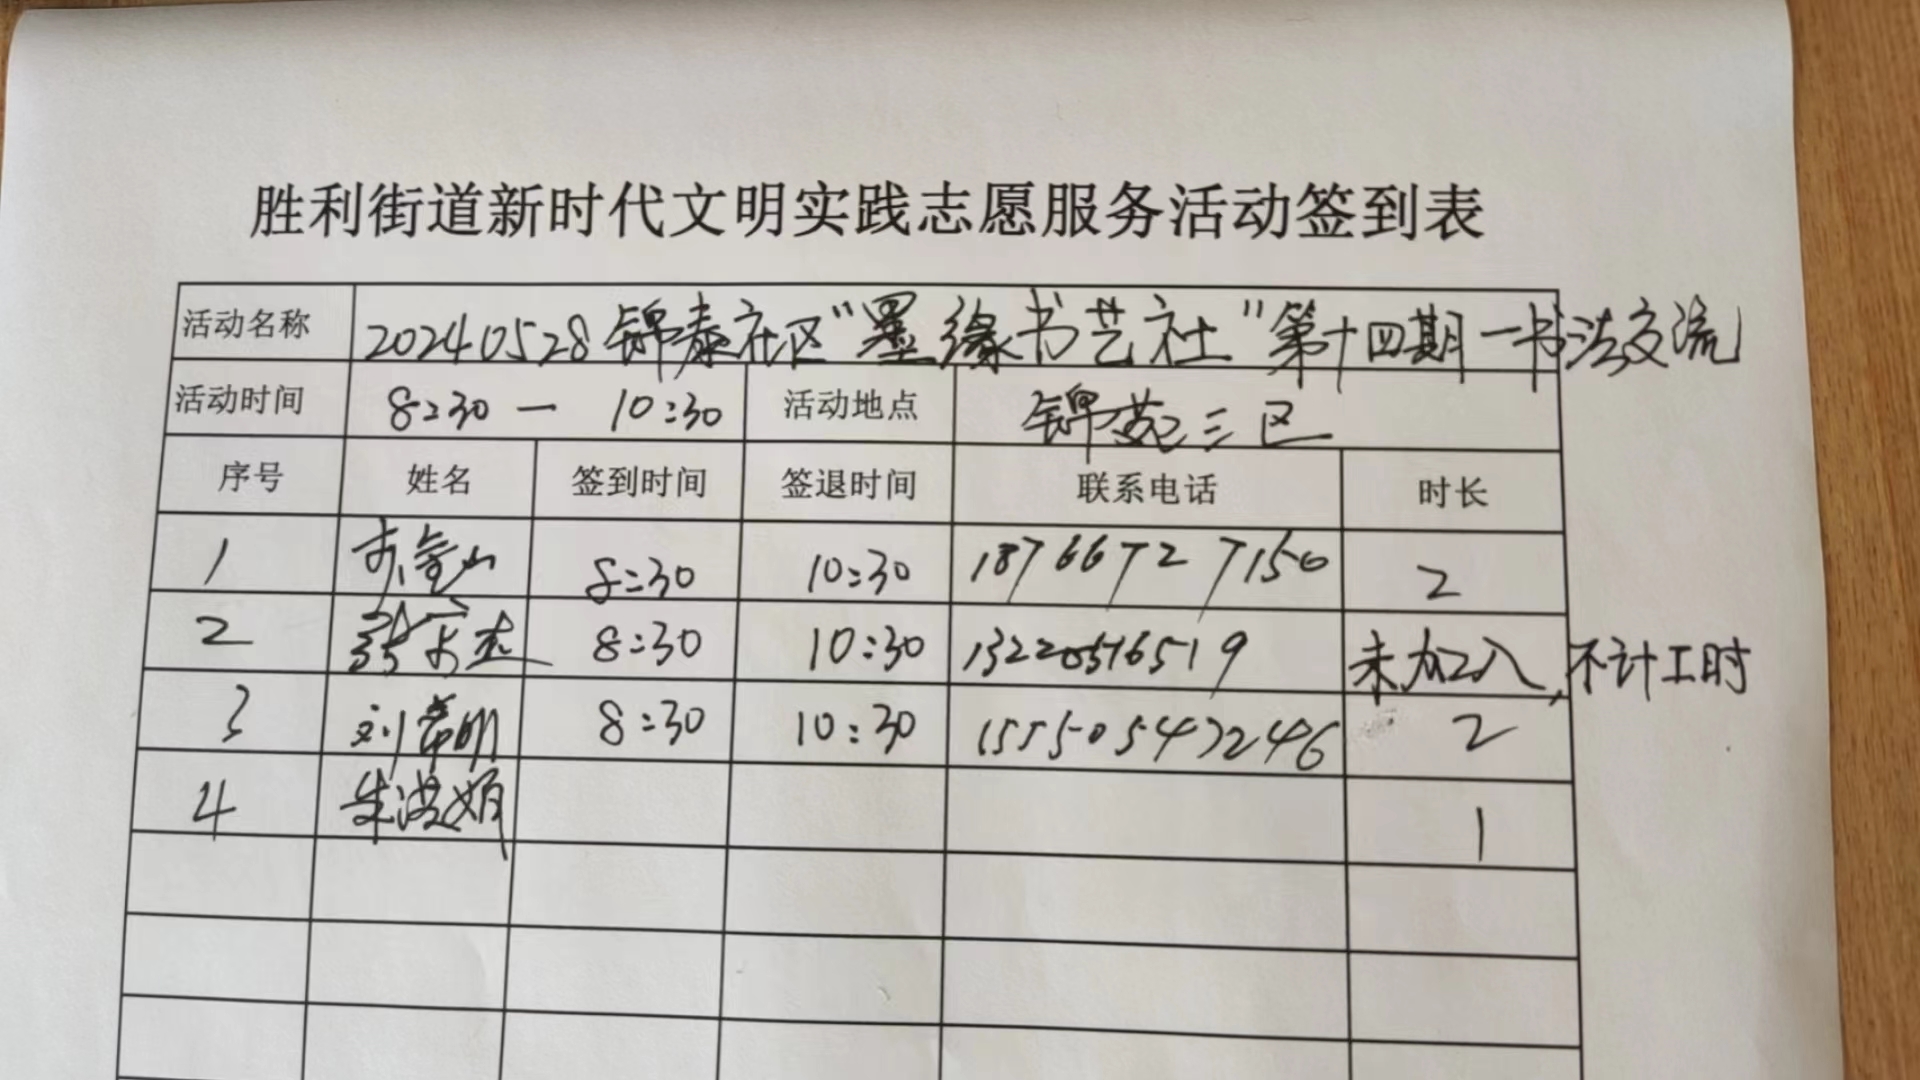 胜利街道新时代文明实践志愿服务活动签到表
活动名称 20240528锦泰社区"墨缘书艺社"第十四期一书法交流
活动时间 8:30 — 10:30 活动地点 锦苑三区
序号 姓名 签到时间 签退时间 联系电话 时长
1 8:30 10:30 18766727150 2
2 8:30 10:30 13220516519 未加入,不计工时
3 8:30 10:30 15550547246 2
4 朱洪娟 1